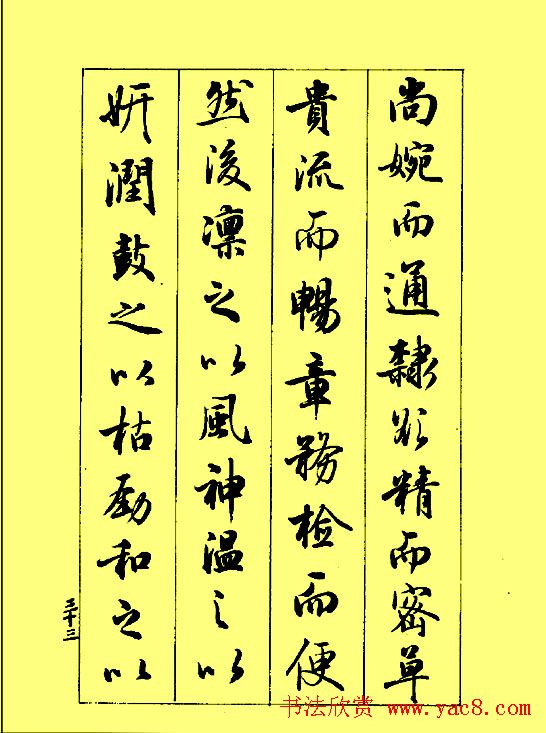 尚婉而通隸欲精而密草
貴流而暢章務檢而便
然後凜之以風神溫之以
妍潤鼓之以枯勁和之以
三十三
书法欣赏 www.yac8.com